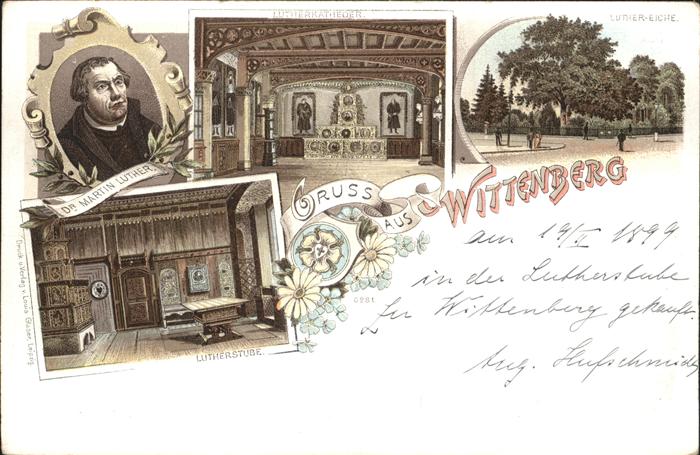 LUTHERKATHEDER.
LUTHER-EICHE.
DR. MARTIN LUTHER.
GRUSS
AUS
WITTENBERG
Druck u. Verlag v. Louis Glaser, Leipzig
LUTHERSTUBE.
am 19/V 1899
in der Lutherstube
zu Wittenberg gekauft.
Aug. Hufschmidt